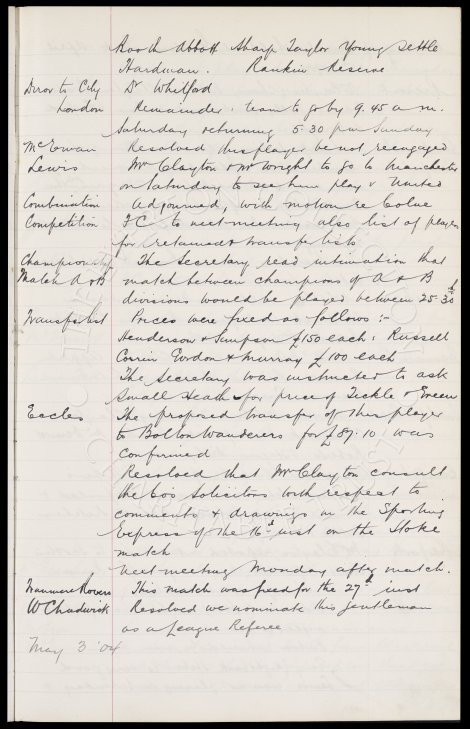 Booth Abbott Sharp Taylor Young Settle
Hardman. Rankin Reserve
Direr to City Dr Whitford
London Remainder. team to go by 9.45 a.m.
Saturday returning 5.30 p.m. Sunday
McEwan Resolved this player be not reengaged
Lewis Mr Clayton & Mr Wright to go to Manchester
on Saturday to see him play v United
Combination Adjourned, with motion re Colne
Competition F C to next meeting also list of players
for retained & transfer lists
Championship The Secretary read intimation that
Match A v B match between champions of A & B
divisions would be played between 25-30th
Transfer list Prices were fixed as follows :-
Henderson & Simpson £150 each: Russell
Corrin Gordon & Murray £100 each
The Secretary was instructed to ask
Small Heath for price of Tickle & Green
Eccles The proposed transfer of this player
to Bolton Wanderers for £87.10 was
confirmed
Resolved that Mr Clayton consult
the Cos Solicitors with respect to
comments & drawings in the Sporting
Express of the 16th inst on the Stoke
match
next meeting Monday after match.
Tranmere Rovers This match was fixed for the 27th inst
W Chadwick Resolved we nominate this gentleman
as a League Referee
May 3 '04